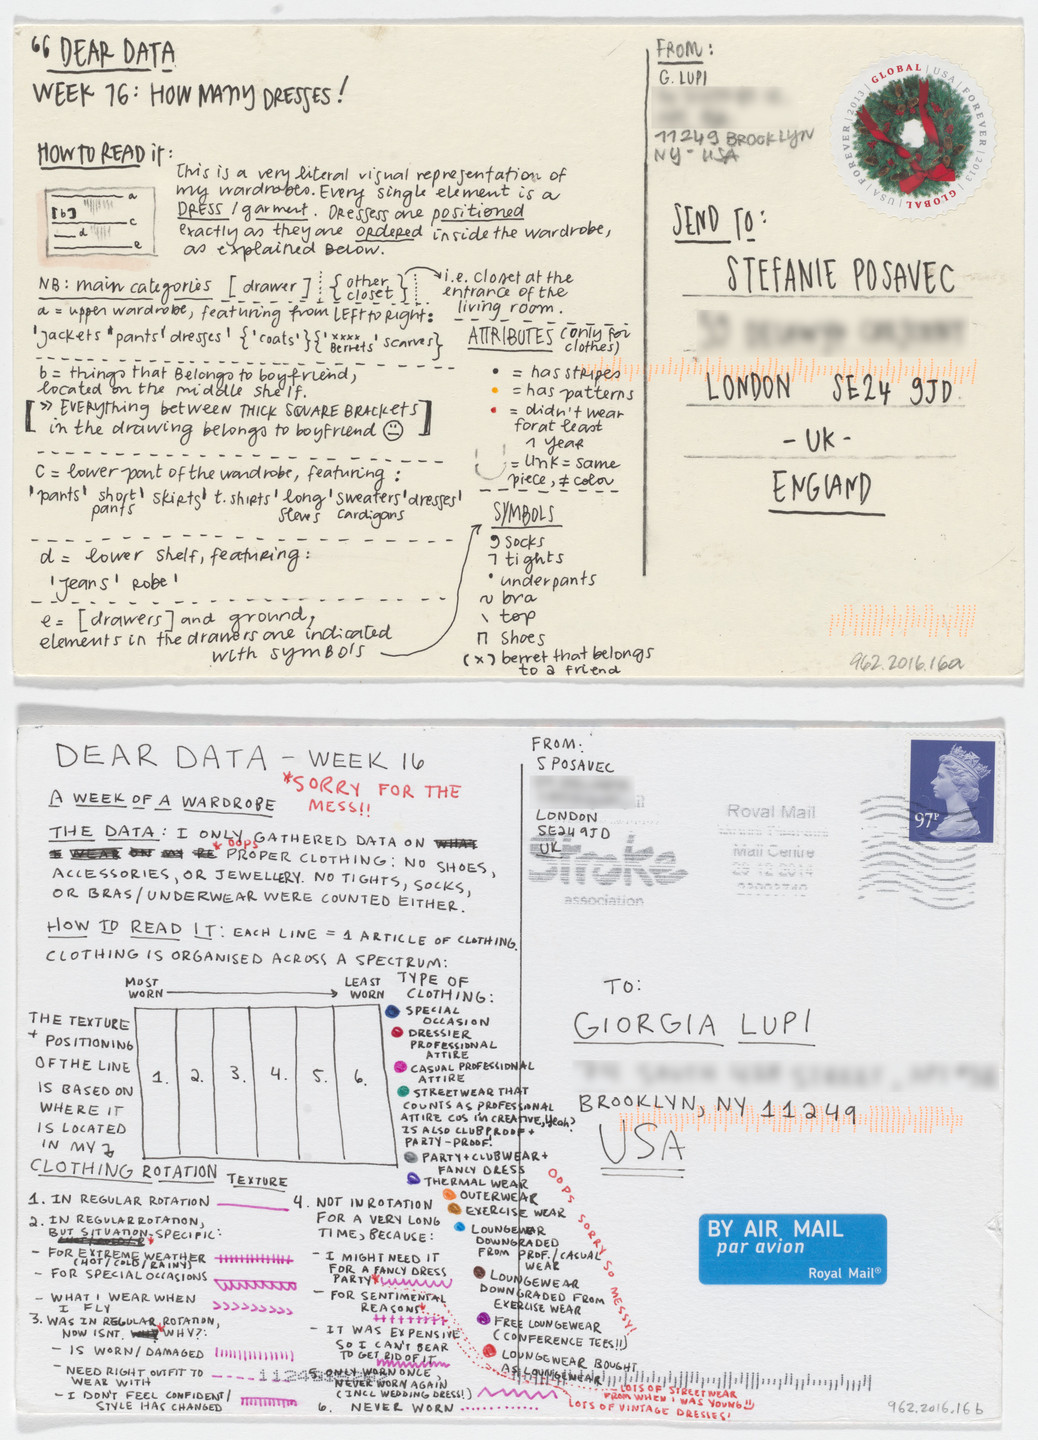 “ DEAR DATA
WEEK 16: HOW MANY DRESSES!
HOW TO READ it:
a
[b]
c
d
e
This is a very literal visual representation of
my wardrobes. Every single element is a
DRESS / garment. Dresses are positioned
exactly as they are ordered inside the wardrobe,
as explained below.
NB: main categories [drawer] {other closet}
i.e. closet at the
entrance of the
living room.
a = upper wardrobe, featuring from LEFT to Right:
'jackets' 'pants' dresses' {'coats'} {'xxxx Berrets' scarves}
b = things that Belongs to boyfriend,
located on the middle shelf.
[ >> EVERYthing between THICK SQUARE BRACKETS
in the drawing belongs to boyfriend ]
C = lower part of the wardrobe, featuring:
'pants' short pants' skirts' t.shirts' long sleevs' sweaters cardigans' dresses'
d = lower shelf, featuring:
'Jeans' Robe'
e = [drawers] and ground,
elements in the drawers are indicated
with symbols
ATTRIBUTES (only for
clothes)
= has stripes
= has patterns
= didn't wear
for at least
1 year
= link = same
piece, ≠ color
SYMBOLS
socks
tights
underpants
bra
top
shoes
(x) berret that belongs
to a friend
FROM:
G. LUPI
11249 BROOKLYN
NY - USA
GLOBAL | USA | FOREVER | 2013 | GLOBAL | USA | FOREVER | 2013
SEND TO:
STEFANIE POSAVEC
LONDON SE24 9JD
- UK -
ENGLAND
962.2016.16a
DEAR DATA - WEEK 16
*SORRY FOR THE
MESS!!
A WEEK OF A WARDROBE
THE DATA: I ONLY GATHERED DATA ON WHAT
I WEAR ON MY RE * OOPS PROPER CLOTHING: NO SHOES,
ACCESSORIES, OR JEWELLERY. NO TIGHTS, SOCKS,
OR BRAS/UNDERWEAR WERE COUNTED EITHER.
HOW TO READ IT: EACH LINE = 1 ARTICLE OF CLOTHING.
CLOTHING IS ORGANISED ACROSS A SPECTRUM:
MOST
WORN
LEAST
WORN
THE TEXTURE
+ POSITIONING
OF THE LINE
IS BASED ON
WHERE IT
IS LOCATED
IN MY
1. 2. 3. 4. 5. 6.
CLOTHING ROTATION
TEXTURE
1. IN REGULAR ROTATION
2. IN REGULAR ROTATION,
BUT SITUATION-SPECIFIC:
- FOR EXTREME WEATHER
(HOT/COLD/RAINY)
- FOR SPECIAL OCCASIONS
- WHAT I WEAR WHEN
I FLY
3. WAS IN REGULAR ROTATION,
NOW ISNT. WHY?:
- IS WORN/DAMAGED
- NEED RIGHT OUTFIT TO
WEAR WITH
- I DON'T FEEL CONFIDENT/
STYLE HAS CHANGED
4. NOT IN ROTATION
FOR A VERY LONG
TIME, BECAUSE:
- I MIGHT NEED IT
FOR A FANCY DRESS
PARTY*
- FOR SENTIMENTAL
REASONS*
- IT WAS EXPENSIVE
SO I CAN'T BEAR
TO GET RID OF IT
5. ONLY WORN ONCE,
NEVER WORN AGAIN
(INCL WEDDING DRESS!)
6. NEVER WORN
TYPE OF
CLOTHING:
SPECIAL
OCCASION
DRESSIER
PROFESSIONAL
ATTIRE
CASUAL PROFESSIONAL
ATTIRE
STREETWEAR THAT
COUNTS AS PROFESSIONAL
ATTIRE COS I'M CREATIVE, yeah?
IS ALSO CLUBPROOF +
PARTY-PROOF!
PARTY + CLUBWEAR +
FANCY DRESS
THERMAL WEAR
OUTERWEAR
EXERCISE WEAR
LOUNGEWEAR
DOWNGRADED
FROM PROF./CASUAL
WEAR
LOUNGEWEAR
DOWNGRADED FROM
EXERCISE WEAR
FREE LOUNGEWEAR
(CONFERENCE TEES!!)
LOUNGEWEAR BOUGHT
AS LOUNGEWEAR
OOPS SORRY SO MESSY!
LOTS OF STREETWEAR
FROM WHEN I WAS YOUNG!!
LOTS OF VINTAGE DRESSES!
FROM:
S POSAVEC
LONDON
SE24 9JD
UK
Stroke
association
Royal Mail
Mail Centre
29-12-2014
97P
TO:
GIORGIA LUPI
BROOKLYN, NY 11249
USA
BY AIR MAIL
par avion
Royal Mail®
962.2016.16b